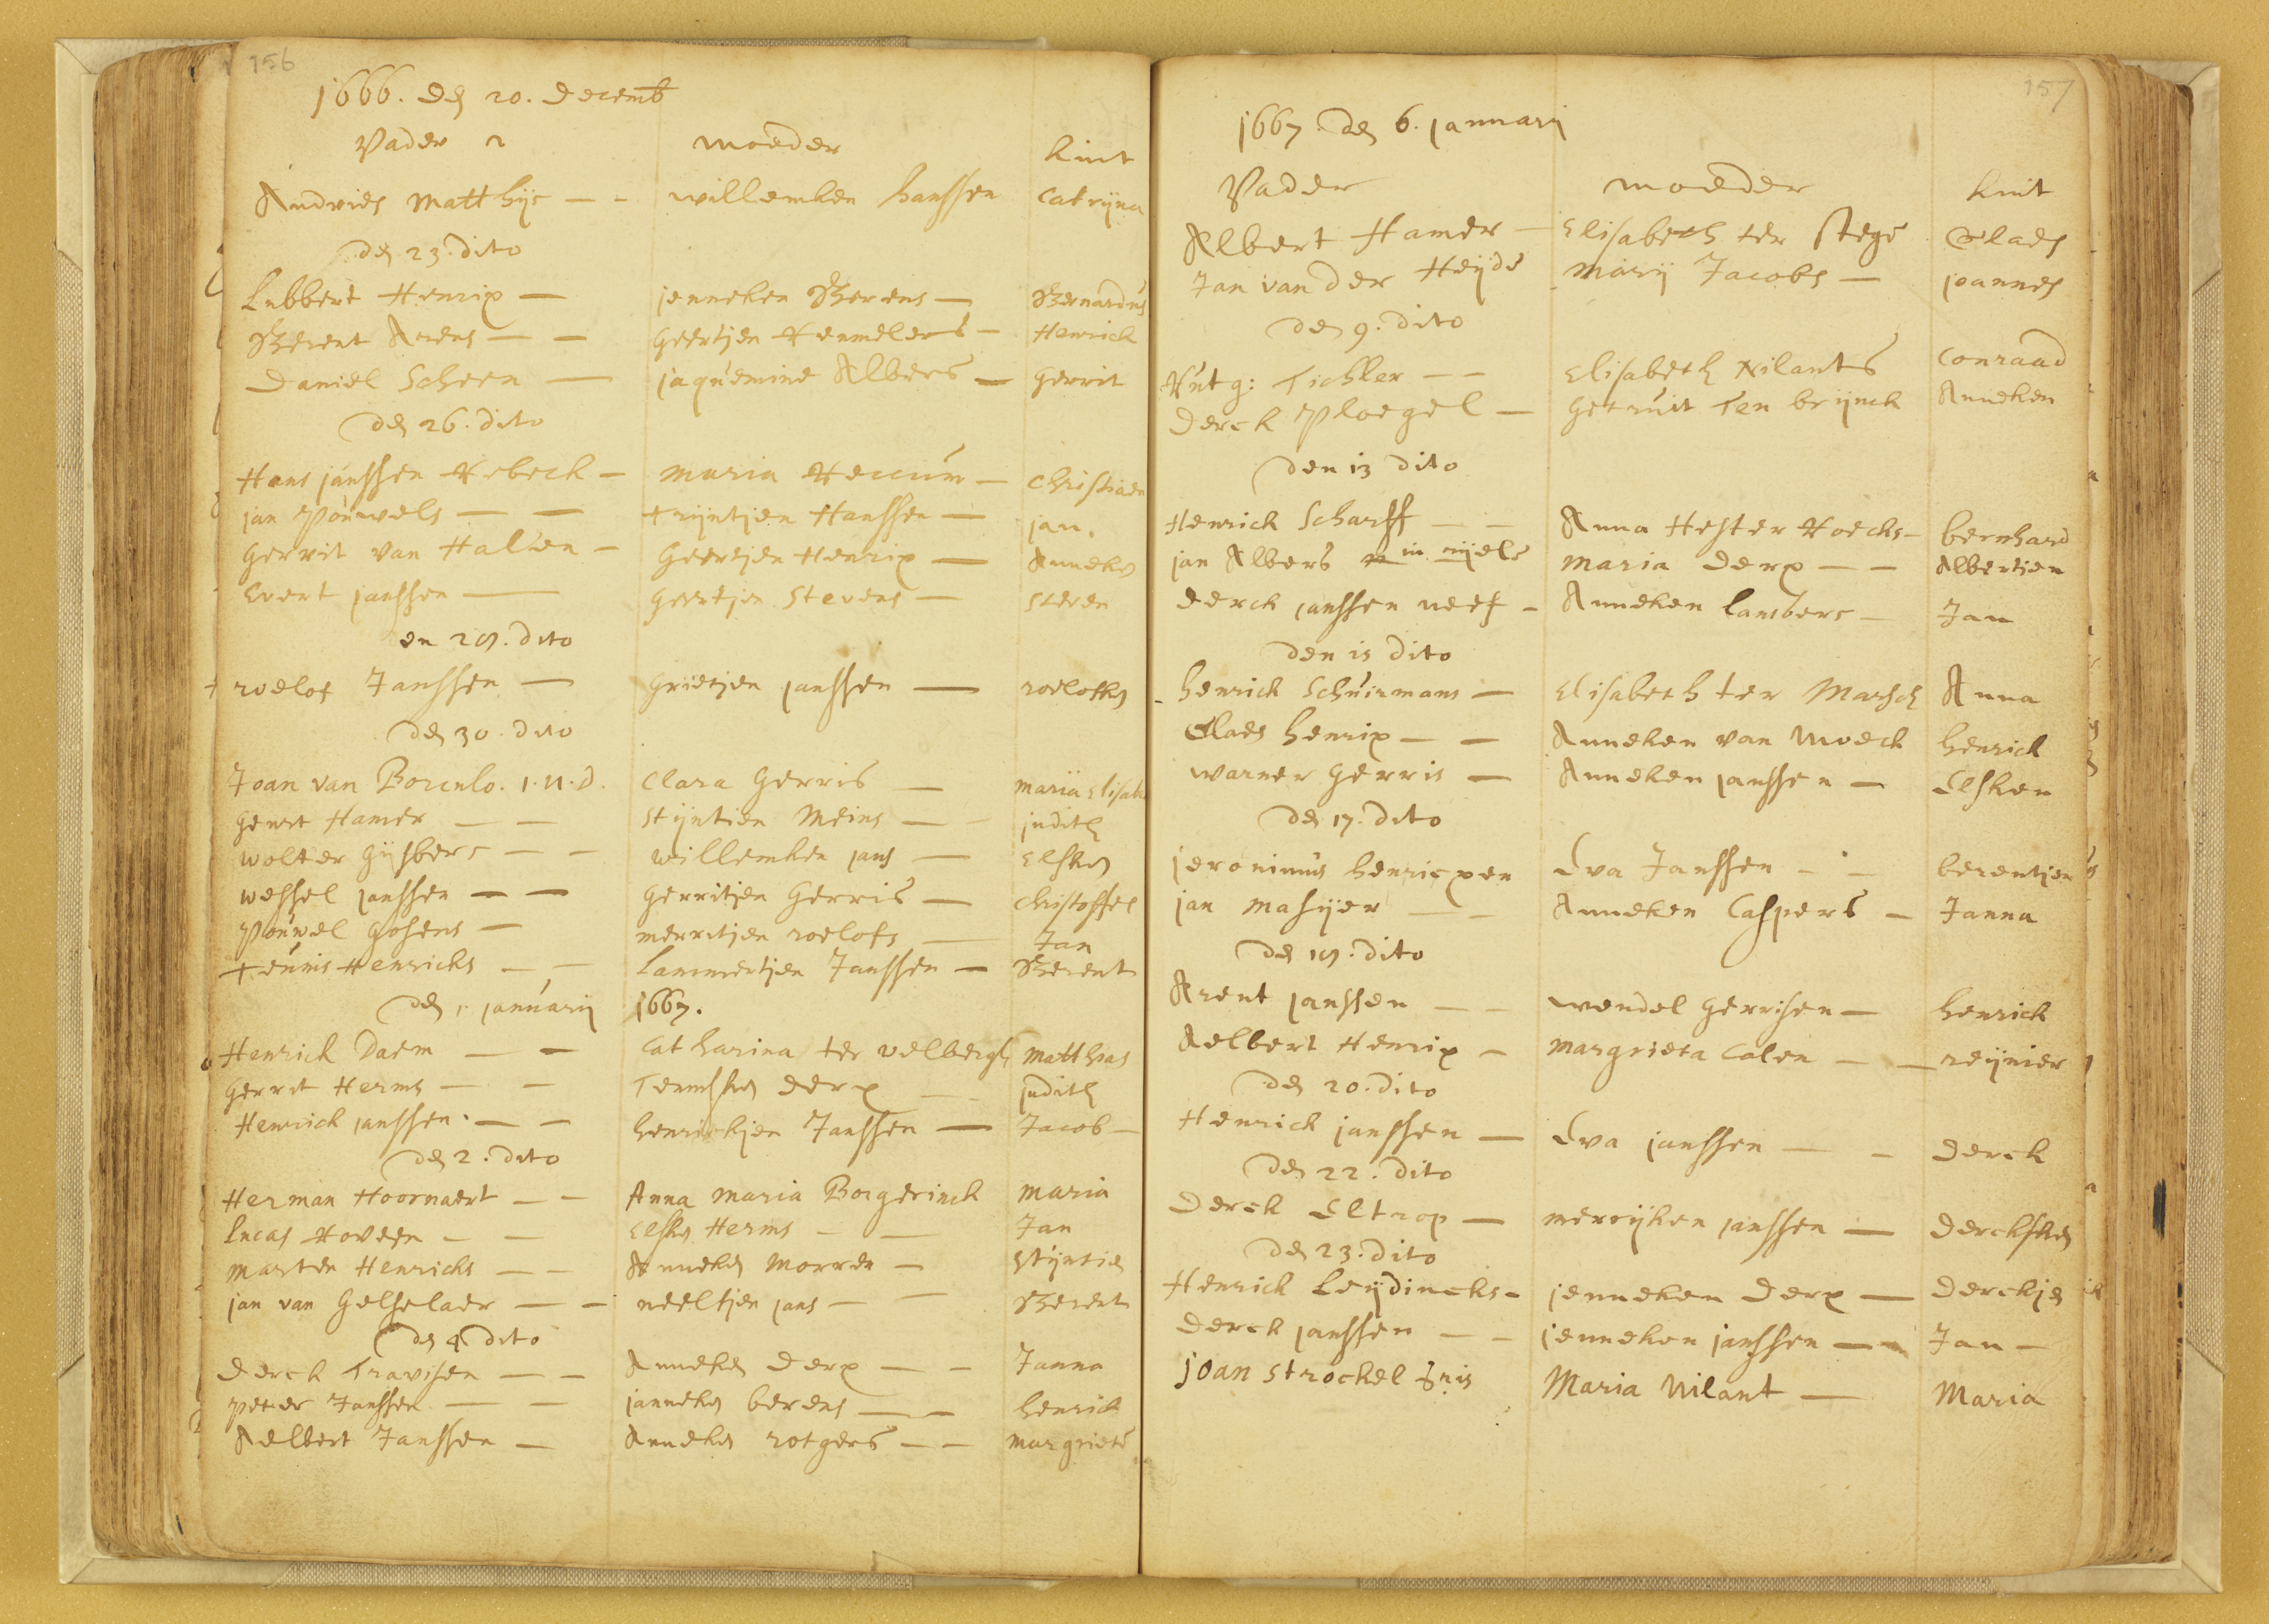 156
1666. den 20. decemb
Vader moeder kint
Andries Matthijs — - willemken hanssen Catrijna
den 23. dito
Lubbert Henrix — jenneken Berens — Bernardus
Berent Arens — — Geertjen Remelers — Henrick
Daniel Scheen — jaquemine Albers — Gerrit
den 26. dito
Hans janssen Rebeck — maria Reccum — Christiaen
jan Pouwels — — trijntjen Hanssen — jan.
Gerrit van Halsen — Geertjen Henrix — Anneken
Evert janssen — Geertjen Stevens — Steven
en 29. dito
+ roelof Janssen — Grietjen janssen — roelofken
den 30. dito
Joan van Borculo. I.U.D. Clara Gerris — maria Elisab
Geurt Hamer — — Stijntien Meins — - judith
wolter Gijsbers — — willemken jans — Elsken
wessel janssen — — Gerritjen Gerris — Christoffel
Pouwel Gosens — merritjen roelofs — Jan
teunis Henricks — — Lammertjen Janssen — Berent
den 1. januarij 1667.
Henrick Daem — — Catharina ter velbergh Matthias
Gerrit Herms — — Teunisken derx — - judith
Henrick janssen. — — henrickjen Janssen — Jacob —
den 2. dito
Herman Hoornaert — — Anna maria Borgerinck maria
Lucas Hoveen — — Elsken Herms — — Jan
marten Henricks — — Anneken Morren — Stijntien
jan van Gelselaer — — neeltjen jans — — Berent
den 4 dito
Derck Travisen — — Anneken derx — — Janna
peter Janssen — — janneken berens — — henrick
Aelbert Janssen — Anneken rotgers — — margriete
157
1667. den 6. januarij
Vader moeder kint
Albert Hamer — Elisabeth ter stege Claes
Jan van der Heijde marij Jacobs — joannes
den 9. dito
Rutg: Tichler — — Elisabeth Nilants Conraad
derck Ploegel — Getruit Ten brijnck Anneken
den 13 dito
Henrick Scharff — — Anna Hester Roecks — bernhard
jan Albers in nijels maria derx — — Albertien
derck janssen neef — Anneken lambers — Jan
den 15 dito
- henrick Schuirmans — Elisabeth ter Marsch Anna
Claes henrix — — Anneken van Moeck henrick
warner Gerris — Anneken janssen — Elsken
den 17. dito
jeronimus henricxen Eva Janssen — — berentjen
jan masijer — — Anneken Caspers — Janna
den 19. dito
Arent janssen — — wendel Gerrisen — henrick
Aelbert Henrix — margrieta Colen — — reijnier
den 20. dito
Henrick janssen — Eva janssen — — derck
den 22. dito
Derck Eltrop — merrijken janssen — dercksken
den 23. dito
Henrick Leijdincks — jenneken derx — derckjen
derck janssen — — jenneken janssen — — Jan —
joan Strockel Maria Nilant — Maria